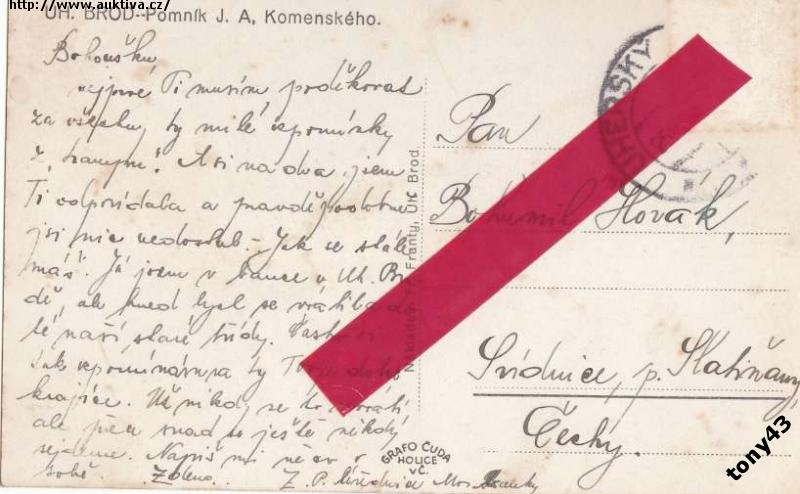 http://www.auktiva.cz/
UH. BROD--Pomník J. A. Komenského.
Bohoušku,
nejprve Ti musím poděkovat
za všechny ty milé vzpomínky
z "trampu". Asi na dva jsem
Ti odpovídala a pravděpodobně
jsi nic nedostal. - Jak se stále
máš? Já jsem v bance v Uh. Bro-
dě, ale hned bych se vrátila do
té naší staré třídy. Často si
tak vzpomínám na ty
krajíce. Už nikdy se to nevrátí
ale přece snad se ještě někdy
sejdeme. Napiš mi něco o
sobě. Zdena.
Z. P. úřednice
Nákladem Fr. Franty, Uh. Brod.
GRAFO ČUDA
HOLICE
v Č.
UHERSKÝ
Pan
Bohumil Novák,
Svídnice, p. Slatiňany
Čechy.
tony43